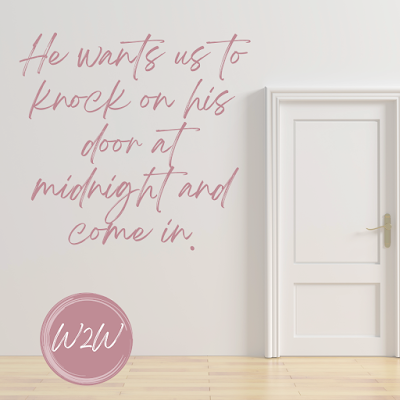 He wants us to
knock on his
door at
midnight and
come in.
W2W